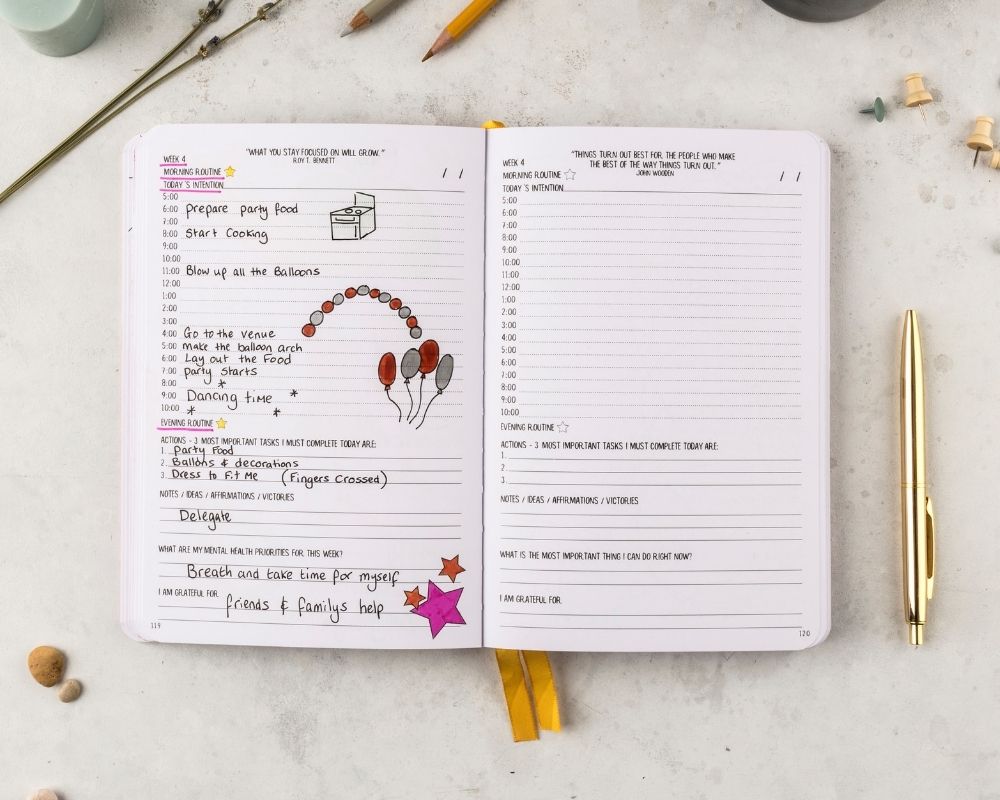 "WHAT YOU STAY FOCUSED ON WILL GROW."
ROY T. BENNETT
WEEK 4
MORNING ROUTINE
/ /
TODAY'S INTENTION
5:00
6:00 prepare party food
7:00
8:00 Start Cooking
9:00
10:00
11:00 Blow up all the Balloons
12:00
1:00
2:00
3:00
4:00 Go to the venue
5:00 make the balloon arch
6:00 Lay out the Food
7:00 party starts
8:00 *
9:00 Dancing time *
10:00 * *
EVENING ROUTINE
ACTIONS - 3 MOST IMPORTANT TASKS I MUST COMPLETE TODAY ARE:
1. party Food
2. Ballons & decorations
3. Dress to Fit Me (Fingers Crossed)
NOTES / IDEAS / AFFIRMATIONS / VICTORIES
Delegate
WHAT ARE MY MENTAL HEALTH PRIORITIES FOR THIS WEEK?
Breath and take time for myself
I AM GRATEFUL FOR friends & familys help
119
"THINGS TURN OUT BEST FOR THE PEOPLE WHO MAKE
THE BEST OF THE WAY THINGS TURN OUT."
JOHN WOODEN
WEEK 4
MORNING ROUTINE
/ /
TODAY'S INTENTION
5:00
6:00
7:00
8:00
9:00
10:00
11:00
12:00
1:00
2:00
3:00
4:00
5:00
6:00
7:00
8:00
9:00
10:00
EVENING ROUTINE
ACTIONS - 3 MOST IMPORTANT TASKS I MUST COMPLETE TODAY ARE:
1.
2.
3.
NOTES / IDEAS / AFFIRMATIONS / VICTORIES
WHAT IS THE MOST IMPORTANT THING I CAN DO RIGHT NOW?
I AM GRATEFUL FOR
120